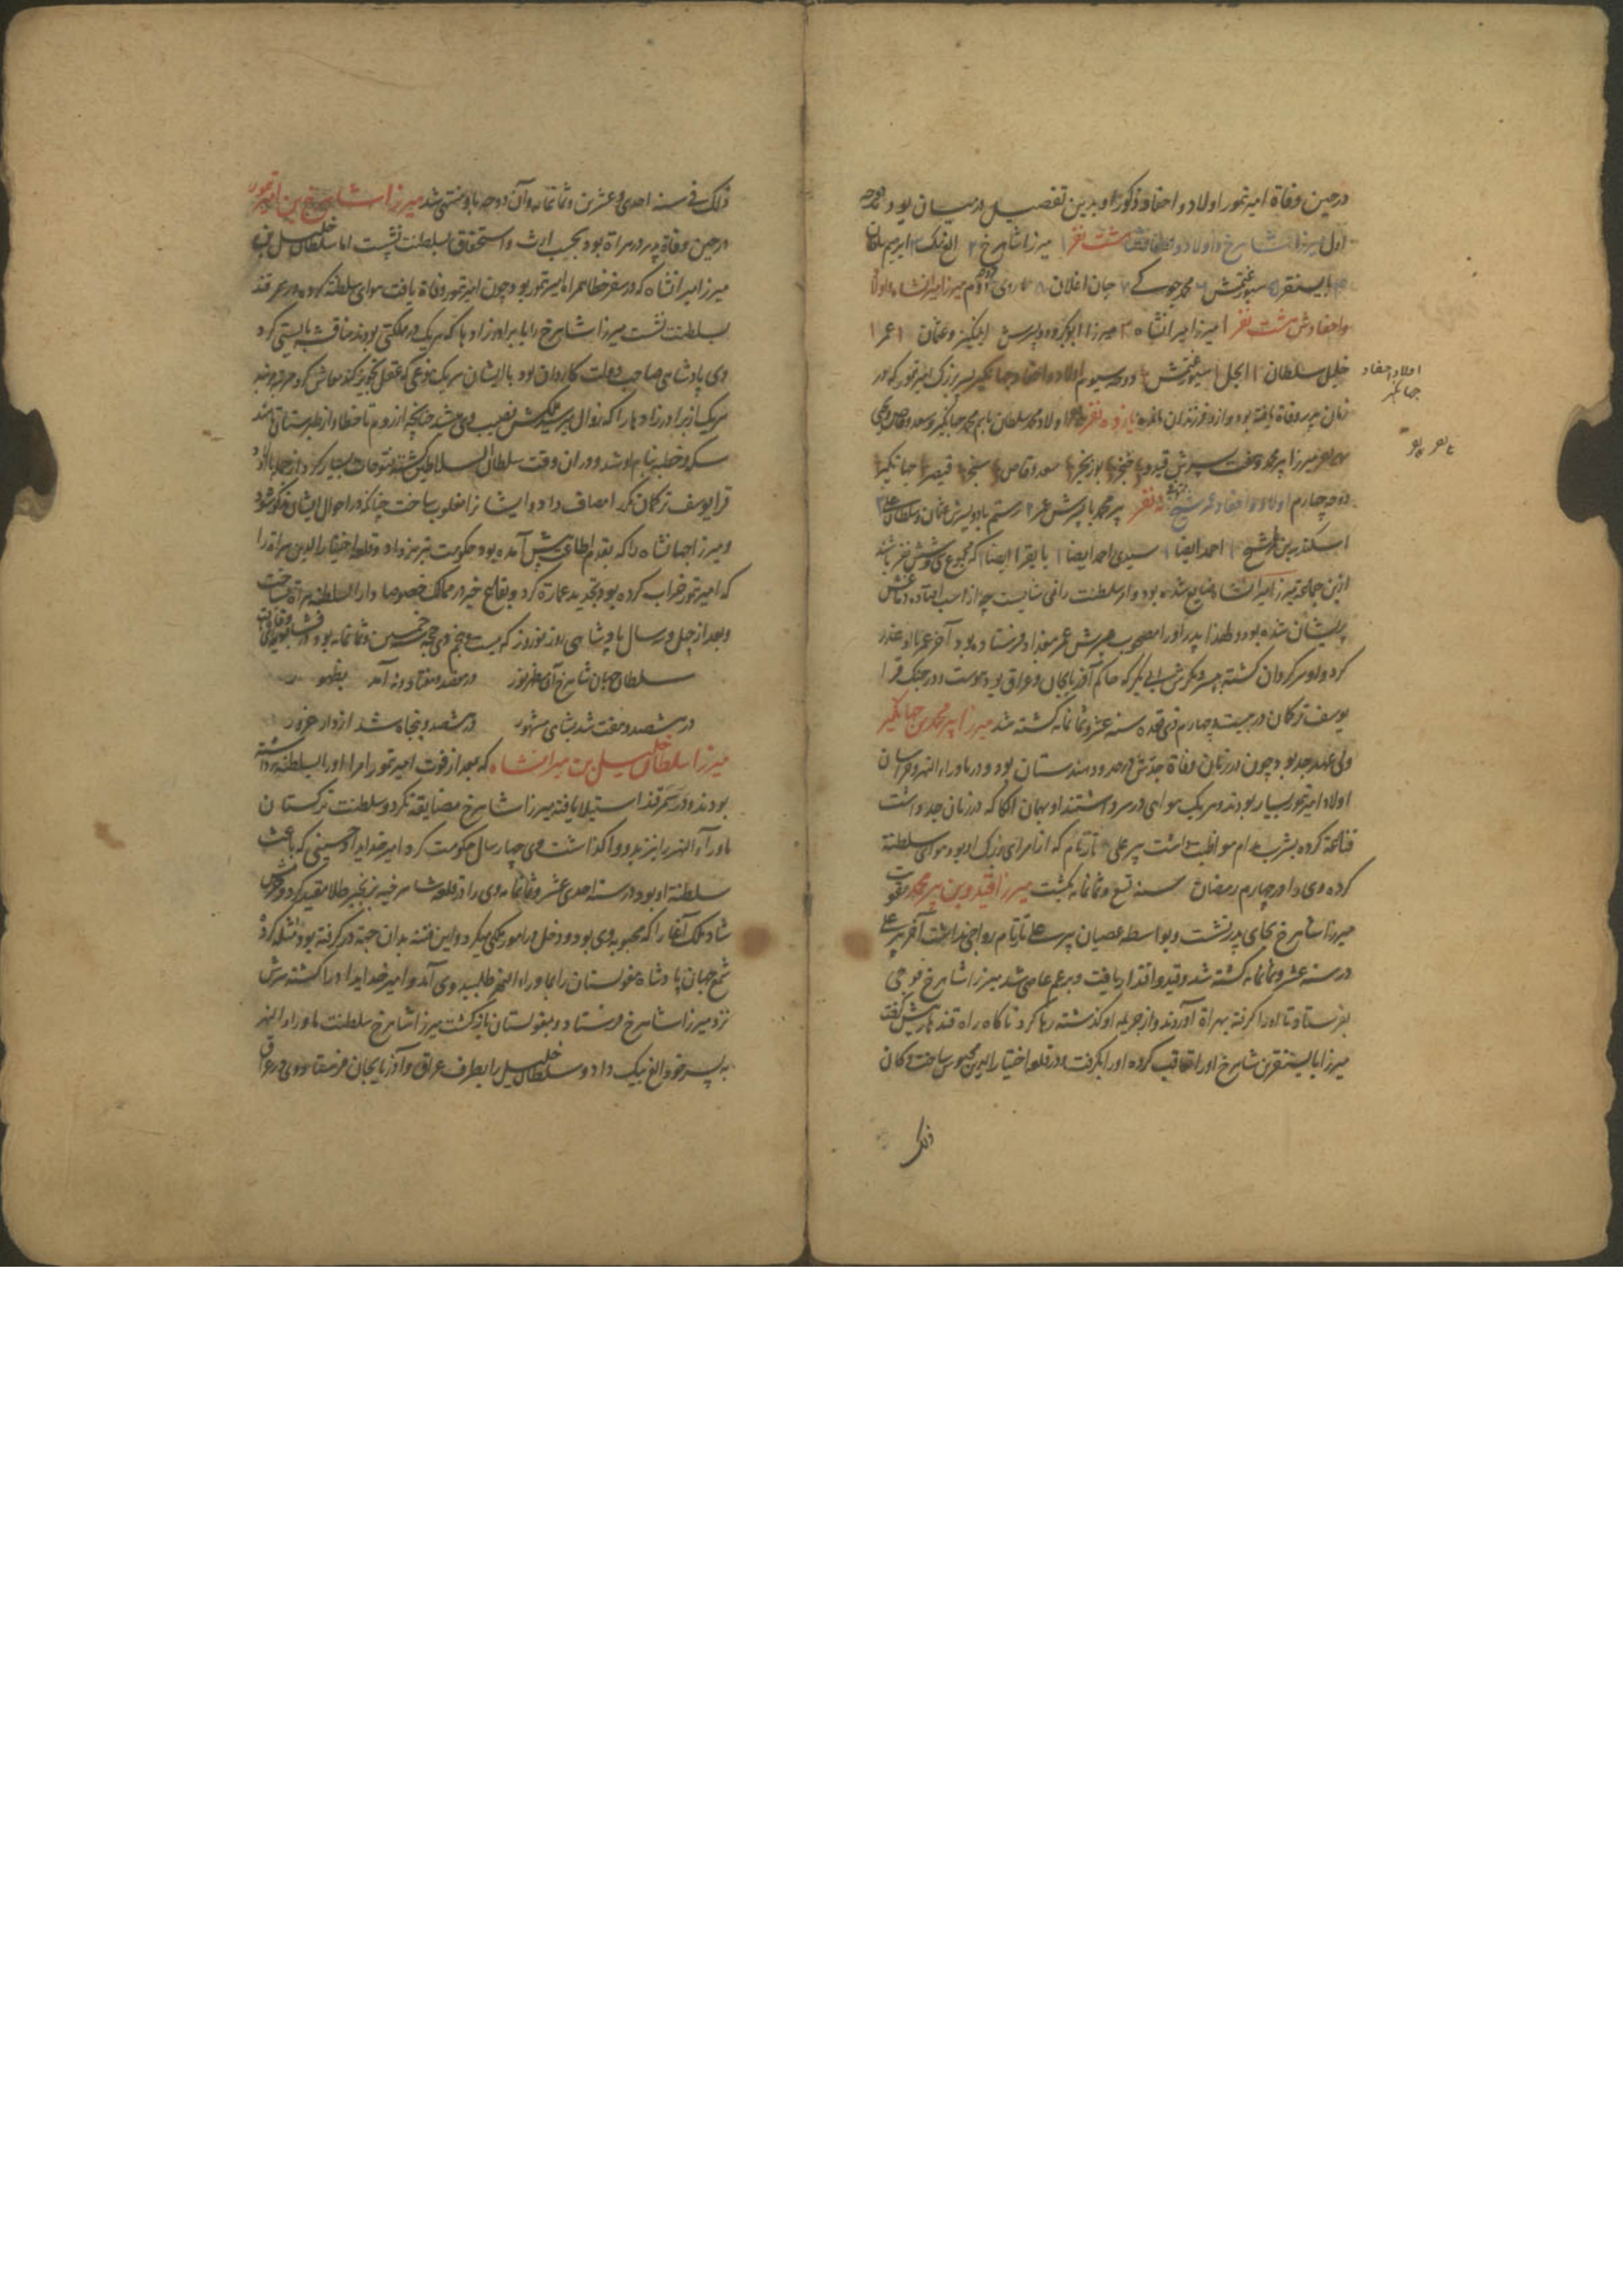 درحین وفاة امیرتمور اولاد و احفاد ذکور او بدین تفصیل درمیان بود دوحه
اول میرزا شاهرخ و اولاد و احفادش هشت نفر میرزا شاهرخ ۲ الغ بیک ۳ ابرهیم سلطان
بایسنقر ۵ سیورغتمش ۶ محمد جوکی ۷ جان اغلان ۸ دوم میرزا امیرانشاه و اولاد
و احفادش هشت نفر ۱ میرزا امیرانشاه ۲ میرزا ابابکر و دو پسرش ایلنگیز و عثمان ۱ عمر ۱
خلیل سلطان ۱ ایجل ۱ سیورغتمش دوحه سیوم اولاد و احفاد جهانگیر پسر بزرگ امیرتمور که در
زمان پدر وفاة یافته بود و از و فرزندان مانده یازده نفر اولاد محمد سلطان نام محمد جهانگیر و سعد وقاص و یحیی
میرزا پیرمحمد و هفت پسرش قیدو سعد وقاص سنجر قیصر جهانگیر
دوحه چهارم اولاد و احفاد عمر شیخ نه نفر پیر محمد با پسرش عمر ۲ رستم با دو پسرش عثمان و سلطان علی ۳
اسکندر بن عمر شیخ ۱ احمد ایضا ۱ سیدی احمد ایضا ۱ بایقرا ایضا که مجموع سی و شش نفر باشند
ازین جمله میرزا امیرانشاه ضایع شده بود و از سلطنت را نمی شایست چه از اسب افتاده دماغش
پریشان شده بود و لهذا پدر او را مصحوب پسرش عمر ببغداد فرستاده بود آخر عمر با او غدر
کرد و او سرگردان گشته پسر دیگرش ابابکر که حاکم آذربایجان و عراق بود پیوست و در جنگ قرا
یوسف ترکمان در بیست و چهارم ذی قعده سنه عشر و ثمانمائه کشته شد میرزا پیر محمد بن جهانگیر
ولی عهد جد بود چون در زمان وفاة جدش در حدود هندستان بود و در ماوراء النهر و خراسان
اولاد امیرتمور بسیار بودند و هر یک هوایی در سر داشتند او بهمان الکا که در زمان جد داشت
قناعة کرده بشرب مدام مواظبت داشت پیر علی تاز نام که از امرای بزرگ او بود هوای سلطنة
کرده وی را در چهارم رمضان سنه تسع و ثمانمائه بکشت میرزا قیدو بن پیر محمد بتقویت
میرزا شاهرخ بجای پدر نشست و بواسطه عصیان پیر علی تاز نام رواجی نداشت آخر پیر علی
در سنه عشر و ثمانمائه کشته شد و قیدو اقتدار یافت و برعم عاصی شد میرزا شاهرخ فوجی
بفرستاد تا او را گرفته بهراة آوردند و از جریمه او گذشته رها کرد ناگاه راه قندهار پیش گرفت
میرزا بایسنقر بن شاهرخ او را تعاقب کرده او را بگرفت و در قلعه اختیار الدین محبوس ساخت و کان
ذلک
اولاد احفاد
جهانگیر
ذلک فی سنه احدی و عشرین و ثمانمائه و آن دوحه باو منتهی شد میرزا شاهرخ بن امیرتمور
درحین وفاة پدر در هراة بود بحسب ارث و استحقاق بسلطنت نشست اما سلطان خلیل بن
میرزا میرانشاه که در سفر خطا همراه امیرتمور بود چون امیرتمور وفاة یافت هوای سلطنة کرده در سمرقند
بسلطنت نشست میرزا شاهرخ را با برادرزادها که هر یک در ملکتی بودند مناقشه بایستی کرد
وی پادشاهی صاحب دولت کاردان بود با ایشان هر یک بنوعی که عقل تجویز کند معاش کرد
هر یک از برادرزادها را که زوال میرسید ملکش نصیب وی میشد چنانچه از روم تا خطا و از طبرستان تا هند
سکه و خطبه بنام او شد و در آن وقت سلطان السلاطین گشته فتوحات بسیار کرد از جمله با اولاد
قرا یوسف ترکمان مکرر امصاف داد و ایشانرا مغلوب ساخت چنانکه در احوال ایشان مذکور شود
و میرزا جهانشاه را که بقدم اطاعت پیش آمده بود حکومت تبریز داد و قلعه اختیار الدین هراة را
که امیرتمور خراب کرده بود تجدید عمارة کرد و بقاع خیر در ممالک خصوصا دار السلطنه هراة ساخت
و بعد از چهل و سه سال پادشاهی روز نوروز که بیست و پنجم ذی حجه خمسین و ثمانمائه بود
سلطان جهان شاهرخ آن مظهر نور در هفتصد و هفتاد و نه آمد بظهور
در هشتصد و هفت شد بشاهی مشهور در هشتصد و پنجاه شد از دار غرور
میرزا سلطان خلیل بن میرانشاه که بعد از فوت امیرتمور امرا او را بسلطنة برداشته
بودند و در سمرقند استیلا یافته میرزا شاهرخ مضایقه نکرد و سلطنت ترکستان
ماوراء النهر را نیز بدو واگذاشت وی چهار سال حکومت کرد امیر خدایداد حسینی که باعث
سلطنة او بود در سنه احدی عشر و ثمانمائه وی را در قلعه شاهرخیه بزنجیر طلا مقید کرد و
شاد ملک آغا را که محبوبه وی بود و دخل در امور ملکی میکرد و این فتنه بدان جهة در گرفته بود مثله کرد
شمع جهان پادشاه مغولستان را بماوراء النهر طلبید وی آمد و امیر خدایداد را کشته سرش
نزد میرزا شاهرخ فرستاد و بمغولستان بازگشت میرزا شاهرخ سلطنت ماوراء النهر
به پسر خود الغ بیک داد و سلطان خلیل را بطرف عراق و آذربایجان فرستاد و وی در عراق